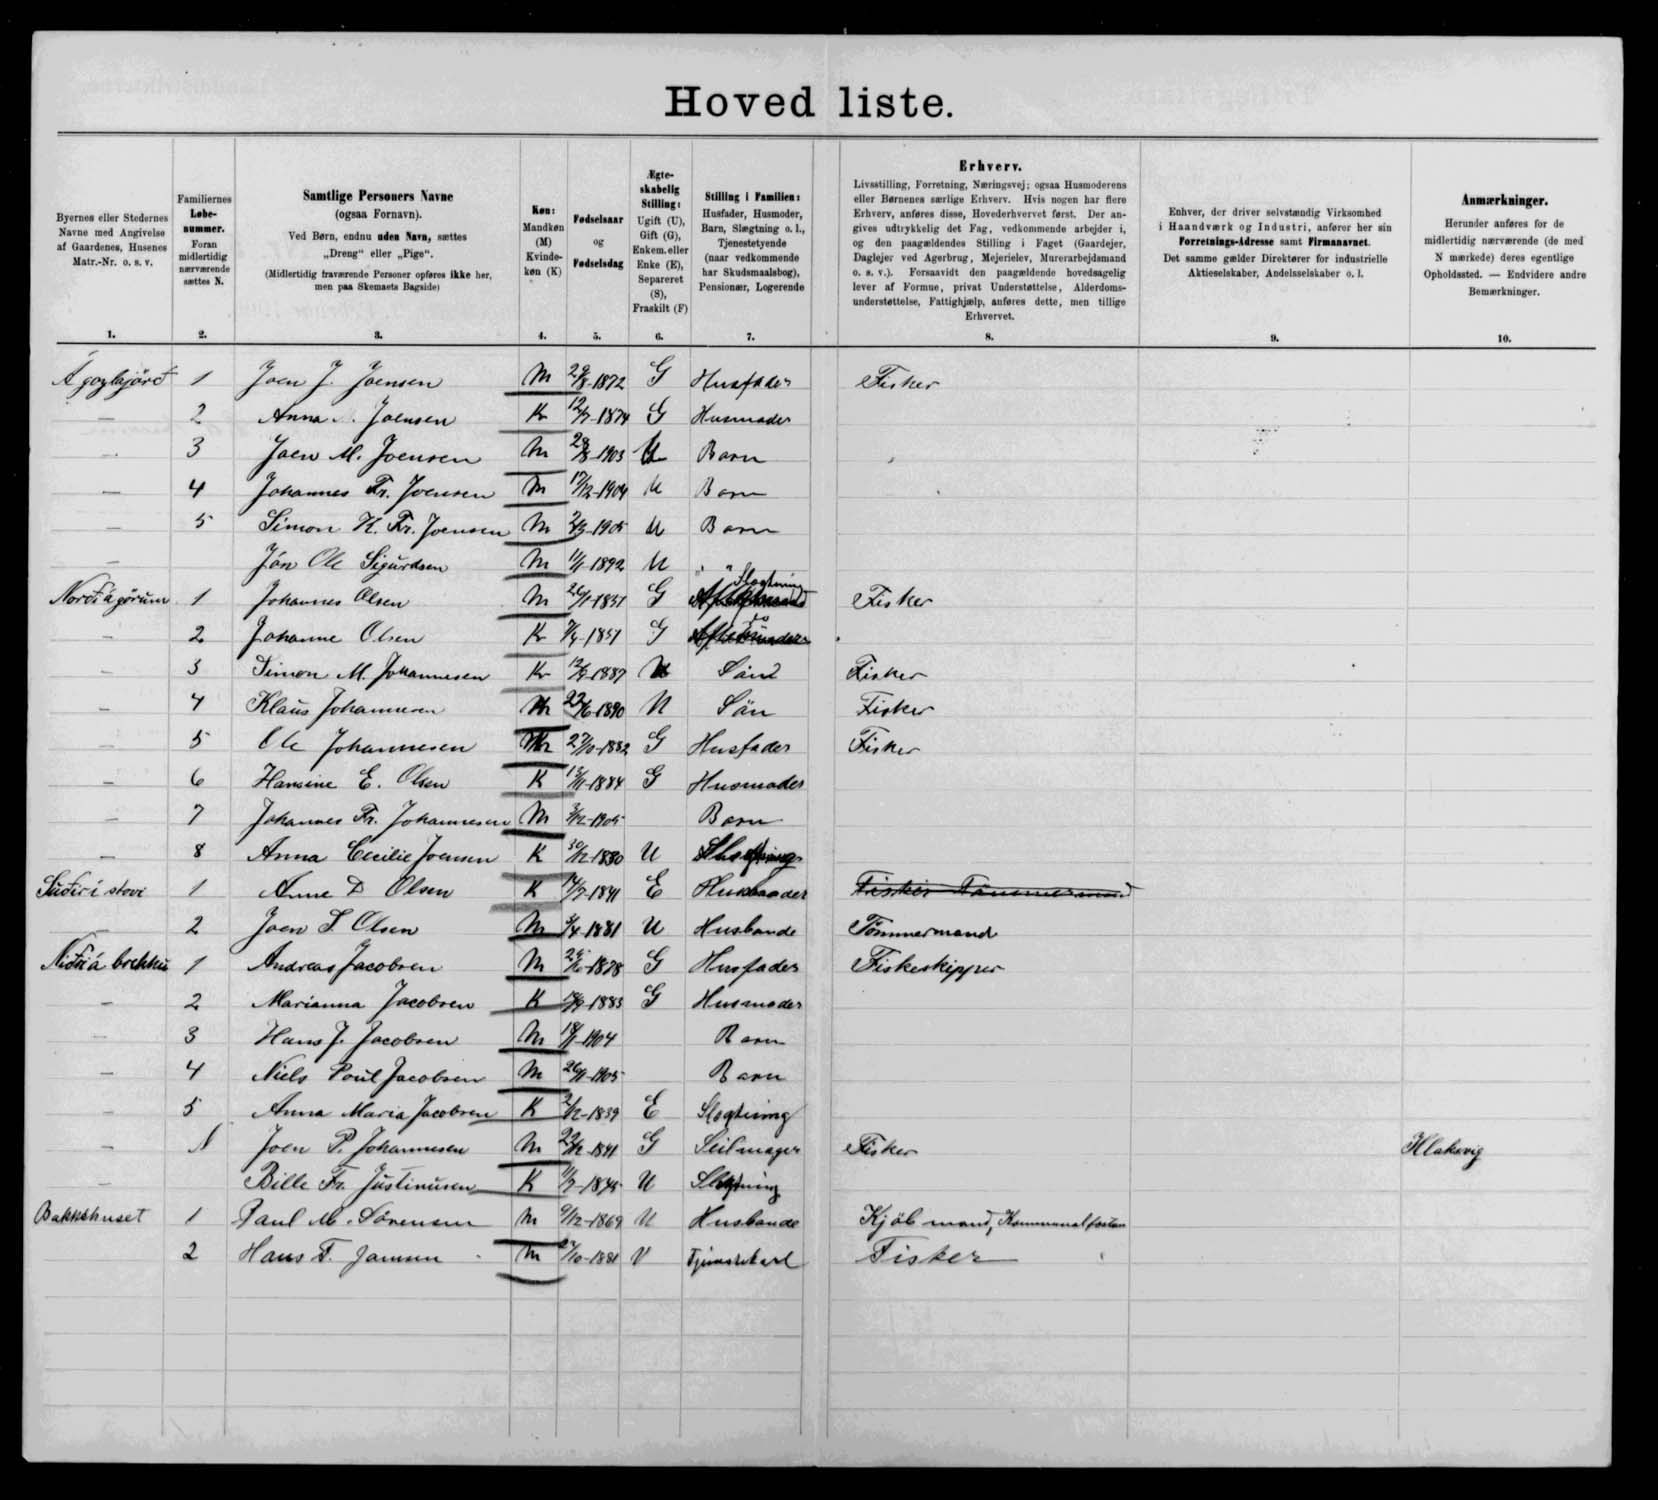 Hoved liste.
Byernes eller Stedernes Navne med Angivelse af Gaardenes, Husenes Matr.-Nr. o. s. v.
Familiernes Løbenummer. Foran midlertidig nærværende sættes N.
Samtlige Personers Navne (ogsaa Fornavn). Ved Børn, endnu uden Navn, sættes „Dreng“ eller „Pige“. (Midlertidig fraværende Personer opføres ikke her, men paa Skemaets Bagside)
Køn: Mandkøn (M) Kvindekøn (K)
Fødselsaar og Fødselsdag
Ægteskabelig Stilling: Ugift (U), Gift (G), Enkem. eller Enke (E), Separeret (S), Fraskilt (F)
Stilling i Familien: Husfader, Husmoder, Barn, Slægtning o. l., Tjenestetyende (naar vedkommende har Skudsmaalsbog), Pensionær, Logerende
Erhverv. Livsstilling, Forretning, Næringsvej; ogsaa Husmoderens eller Børnenes særlige Erhverv. Hvis nogen har flere Erhverv, anføres disse, Hovederhvervet først. Der angives udtrykkelig det Fag, vedkommende arbejder i, og den paagældendes Stilling i Faget (Gaardejer, Daglejer ved Agerbrug, Mejerielev, Murerarbejdsmand o. s. v.). Forsaavidt den paagældende hovedsagelig lever af Formue, privat Understøttelse, Alderdomsunderstøttelse, Fattighjælp, anføres dette, men tillige Erhvervet.
Enhver, der driver selvstændig Virksomhed i Haandværk og Industri, anfører her sin Forretnings-Adresse samt Firmanavnet. Det samme gælder Direktører for industrielle Aktieselskaber, Andelsselskaber o. l.
Anmærkninger. Herunder anføres for de midlertidig nærværende (de med N mærkede) deres egentlige Opholdssted. — Endvidere andre Bemærkninger.
1. 2. 3. 4. 5. 6. 7. 8. 9. 10.
1 Joen J. Joensen M 29/8-1872 G Husfader Fisker
— 2 Anna Joensen K 12/7-1874 G Husmoder
— 3 Joen M. Joensen M 28/8-1903 U Barn
— 4 Johannes Fr. Joensen M 17/12-1904 U Barn
— 5 Simon K. Fr. Joensen M 1905 U Barn
— Jón Ole Sigurdsen M 11/1-1892 U "
Norðragörum 1 Johannes Olsen M G Slægtning Fisker
— 2 Johanne Olsen K G do
— 3 Simon M. Johannesen K 1887 U Sön Fisker
— 4 Klaus Johannesen M 22/6-1890 U Sön Fisker
— 5 Ole Johannesen M 27/10-1882 G Husfader Fisker
— 6 Hansine E. Olsen K 13/11-1884 G Husmoder
— 7 Johannes Fr. Johannesen M 3/12-1905 Barn
— 8 Anna Cecilie Joensen K 30/12-1880 U Slægtning
Suðri i stovi 1 Anne D Olsen K E Husmoder Fisker Tömmermand
— 2 Joen S. Olsen M 3/4-1881 U Husbonde Tömmermand
Niðri á brekku 1 Andreas Jacobsen M 1878 G Husfader Fiskeskipper
— 2 Marianna Jacobsen K 1883 G Husmoder
— 3 Hans J. Jacobsen M 1904 Barn
— 4 Niels Poul Jacobsen M 26/11-1905 Barn
— 5 Anna Maria Jacobsen K 2/12-1839 E Slægtning
— N Joen P. Johannesen M 22/12-1841 G Seilmager Fisker Klaksvig
— Bille Fr. Justinusen K U Slægtning
Bakkshuset 1 Paul M. Sörensen M 9/12-1869 U Husbonde Kjöbmand,
2 Hans F. Jamsen M 27/10-1881 U Tjenestekarl Fisker